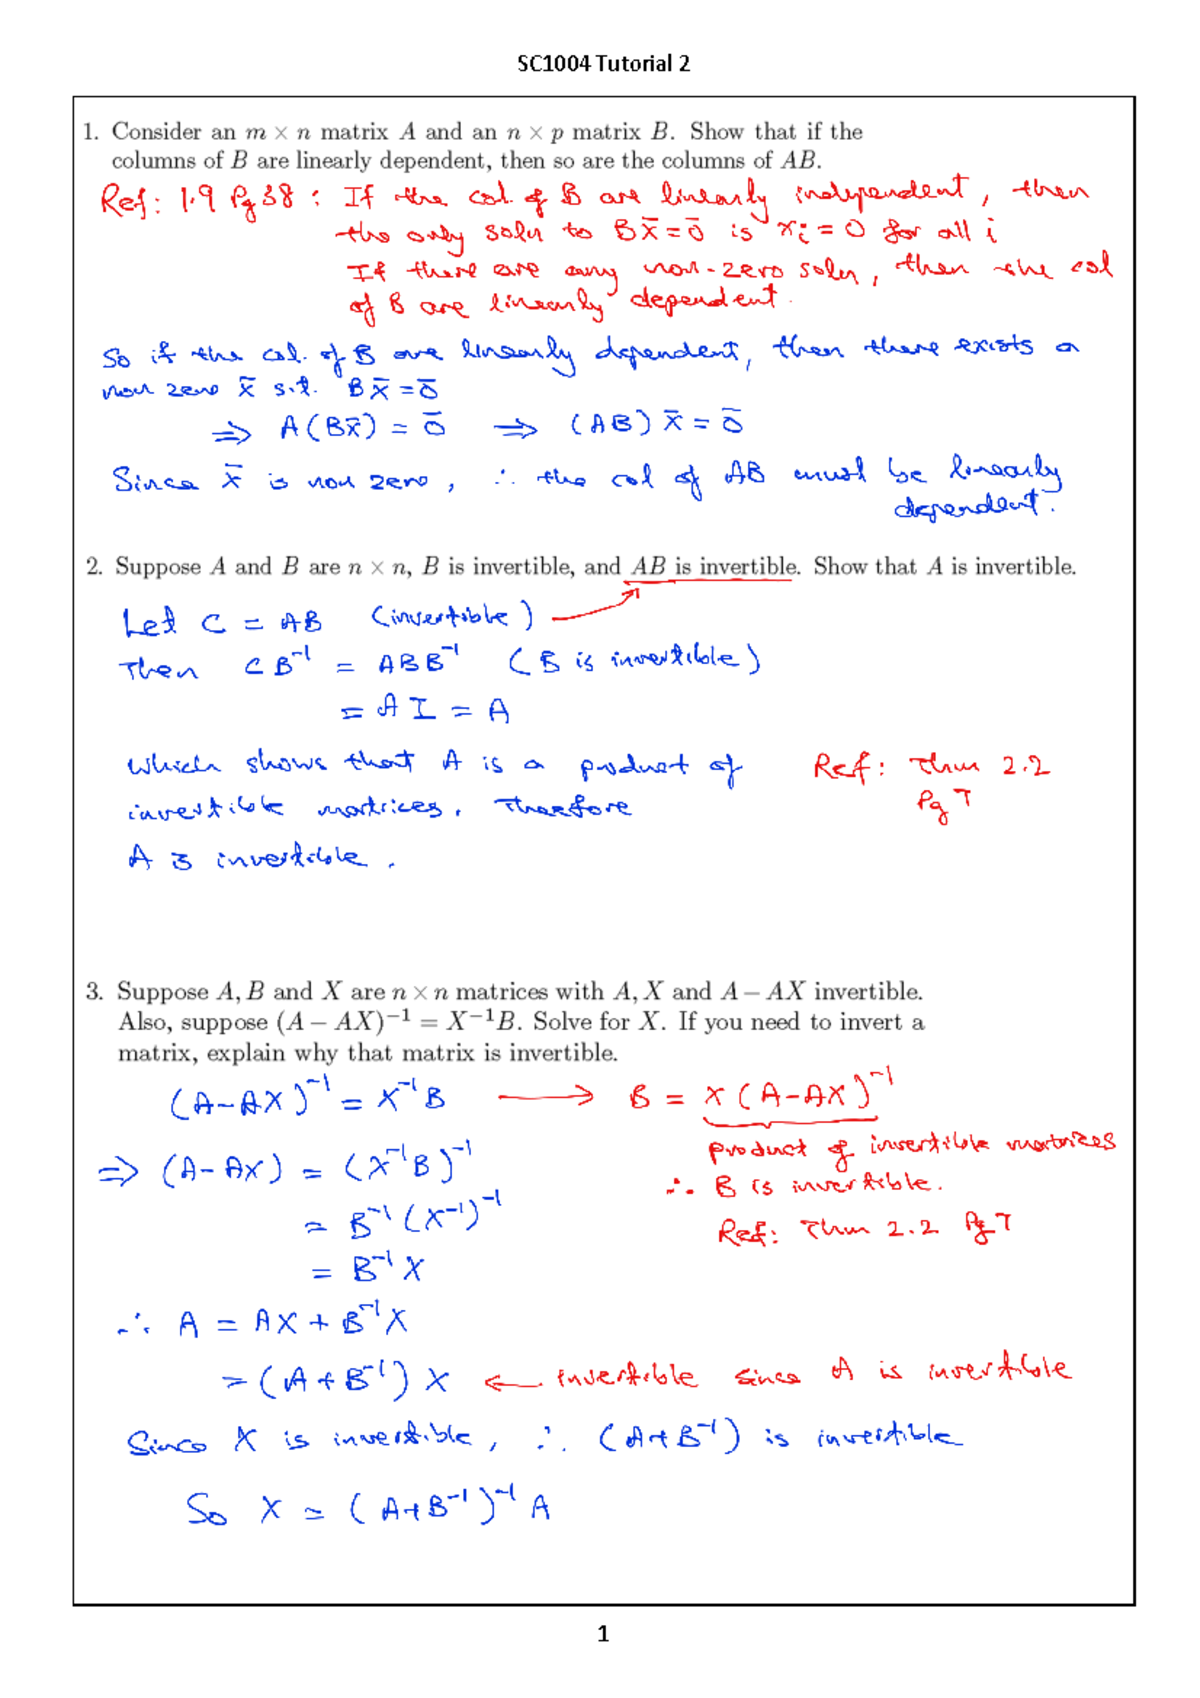 SC1004 Tutorial 2
1. Consider an m × n matrix A and an n × p matrix B. Show that if the
columns of B are linearly dependent, then so are the columns of AB.
Ref: 1.9 Pg 38 : If the col. of B are linearly independent, then
the only soln to Bx̄ = ō is xᵢ = 0 for all i
If there are any non-zero soln, then the col
of B are linearly dependent.
So if the col. of B are linearly dependent, then there exists a
non zero x̄ s.t. Bx̄ = ō
⇒ A(Bx̄) = ō ⇒ (AB)x̄ = ō
Since x̄ is non zero, ∴ the col of AB must be linearly
dependent.
2. Suppose A and B are n × n, B is invertible, and AB is invertible. Show that A is invertible.
Let C = AB (invertible)
Then CB⁻¹ = ABB⁻¹ (B is invertible)
= AI = A
which shows that A is a product of
invertible matrices. Therefore
A is invertible.
Ref: Thm 2.2
Pg 7
3. Suppose A, B and X are n × n matrices with A, X and A − AX invertible.
Also, suppose (A − AX)⁻¹ = X⁻¹B. Solve for X. If you need to invert a
matrix, explain why that matrix is invertible.
(A-AX)⁻¹ = X⁻¹B → B = X(A-AX)⁻¹
product of invertible matrices
⇒ (A-AX) = (X⁻¹B)⁻¹
∴ B is invertible.
= B⁻¹(X⁻¹)⁻¹
Ref: Thm 2.2 Pg 7
= B⁻¹X
∴ A = AX + B⁻¹X
= (A+B⁻¹)X ← invertible since A is invertible
Since X is invertible, ∴ (A+B⁻¹) is invertible
So X = (A+B⁻¹)⁻¹A
1